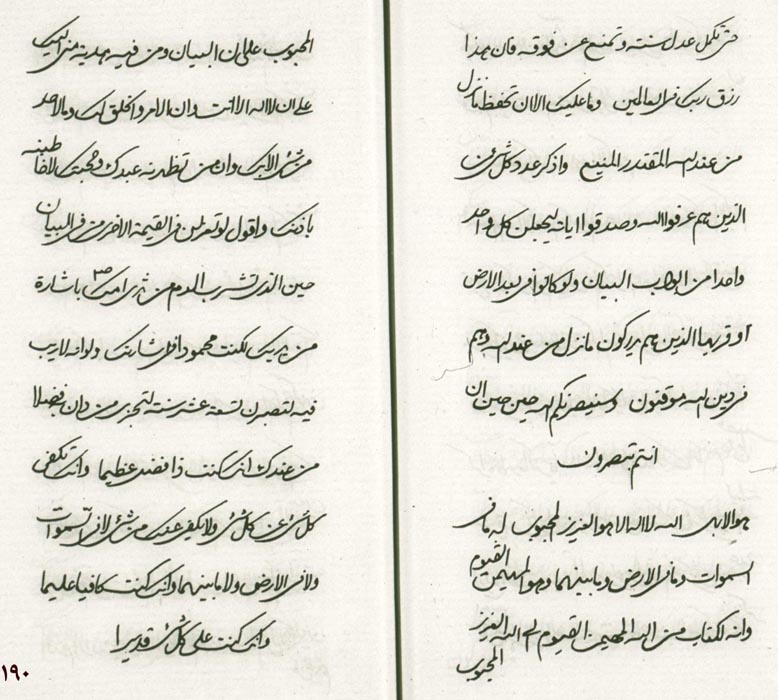 حتى تكمل عدل سنته وتمنع عن فوقه فان هذا
رزق ربك فى العالمين وما عليك الا ان تحفظ ما نزل
من عند الله المقتدر المنيع واذكر عدد كل شئ من
الذين هم عرفوا الله وصدقوا اياته ليجعلن كل واحد
واحدا من ابواب البيان ولو كانوا فى بعد الارض
او قربها الذين هم يدركون ما نزل من عند الله وهم
فى دين الله موقنون وسينصرنكم الله حين حين ان
انتم تبصرون
هو الابهى الله لا اله الا هو العزيز المحبوب له ما فى
السموات وما فى الارض وما بينهما وهو المهيمن القيوم
وانه لكتاب من الله المهيمن القيوم الى الله العزيز
المحبوب
المحبوب على ان البيان ومن فيه هدية منى اليك
على ان لا اله الا انت وان الامر والخلق لك وما لاحد
من شئ الا بك وان من تظهرنه عبدك وحجتك لاخاطبنه
باذنك واقول لو تعزلن فى القيمة الاخرى من فى البيان
حين الذى تشرب اللبن من ثدى امك باشارة
من يديك لكنت محمودا فى اشارتك ولو انه لا ريب
فيه لتصبرن تسعة عشر سنة لتجزى من دان به فضلا
من عندك انك كنت ذا فضل عظيما وانك تكفى
كل شئ عن كل شئ ولا يكفى عنك من شئ لا فى السموات
ولا فى الارض ولا ما بينهما وانك كنت كافيا عليما
وانك كنت على كل شئ قديرا
١٩٠